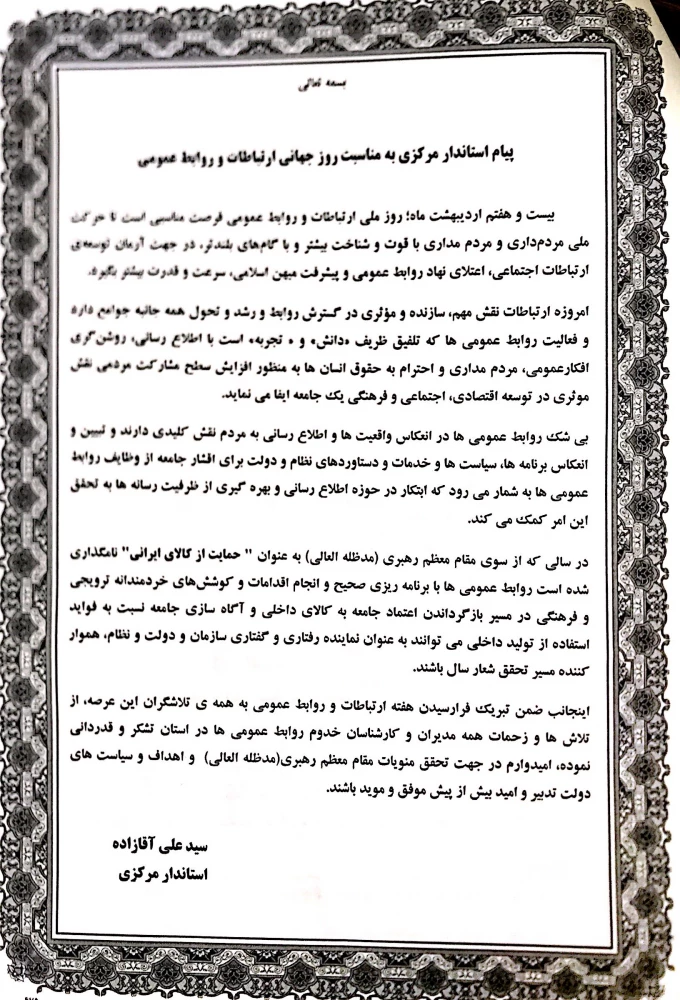 بسمه تعالی
پیام استاندار مرکزی به مناسبت روز جهانی ارتباطات و روابط عمومی
بیست و هفتم اردیبهشت ماه؛ روز ملی ارتباطات و روابط عمومی فرصت مناسبی است تا حرکت
ملی مردم‌داری و مردم مداری با قوت و شناخت بیشتر و با گام‌های بلندتر، در جهت آرمان توسعه‌ی
ارتباطات اجتماعی، اعتلای نهاد روابط عمومی و پیشرفت میهن اسلامی، سرعت و قدرت بیشتر بگیرد.
امروزه ارتباطات نقش مهم، سازنده و مؤثری در گسترش روابط و رشد و تحول همه جانبه جوامع دارد
و فعالیت روابط عمومی ها که تلفیق ظریف «دانش» و « تجربه» است با اطلاع رسانی، روشن‌گری
افکارعمومی، مردم مداری و احترام به حقوق انسان ها به منظور افزایش سطح مشارکت مردمی نقش
موثری در توسعه اقتصادی، اجتماعی و فرهنگی یک جامعه ایفا می نماید.
بی شک روابط عمومی ها در انعکاس واقعیت ها و اطلاع رسانی به مردم نقش کلیدی دارند و تبیین و
انعکاس برنامه ها، سیاست ها و خدمات و دستاوردهای نظام و دولت برای اقشار جامعه از وظایف روابط
عمومی ها به شمار می رود که ابتکار در حوزه اطلاع رسانی و بهره گیری از ظرفیت رسانه ها به تحقق
این امر کمک می کند.
در سالی که از سوی مقام معظم رهبری (مدظله العالی) به عنوان " حمایت از کالای ایرانی" نامگذاری
شده است روابط عمومی ها با برنامه ریزی صحیح و انجام اقدامات و کوشش‌های خردمندانه ترویجی
و فرهنگی در مسیر بازگرداندن اعتماد جامعه به کالای داخلی و آگاه سازی جامعه نسبت به فواید
استفاده از تولید داخلی می توانند به عنوان نماینده رفتاری و گفتاری سازمان و دولت و نظام، هموار
کننده مسیر تحقق شعار سال باشند.
اینجانب ضمن تبریک فرارسیدن هفته ارتباطات و روابط عمومی به همه ی تلاشگران این عرصه، از
تلاش ها و زحمات همه مدیران و کارشناسان خدوم روابط عمومی ها در استان تشکر و قدردانی
نموده، امیدوارم در جهت تحقق منویات مقام معظم رهبری(مدظله العالی) و اهداف و سیاست های
دولت تدبیر و امید بیش از پیش موفق و موید باشند.
سید علی آقازاده
استاندار مرکزی